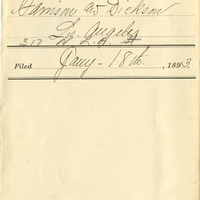 Harrison as Dickson
Los Angeles
317 W. 2nd St
Filed Jany - 18th. , 1893